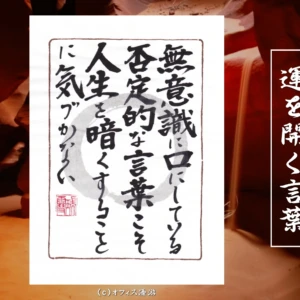 運を開く言葉
無意識に口にしている
否定的な言葉こそ
人生を暗くすること
に気づかない
(c)オフィス